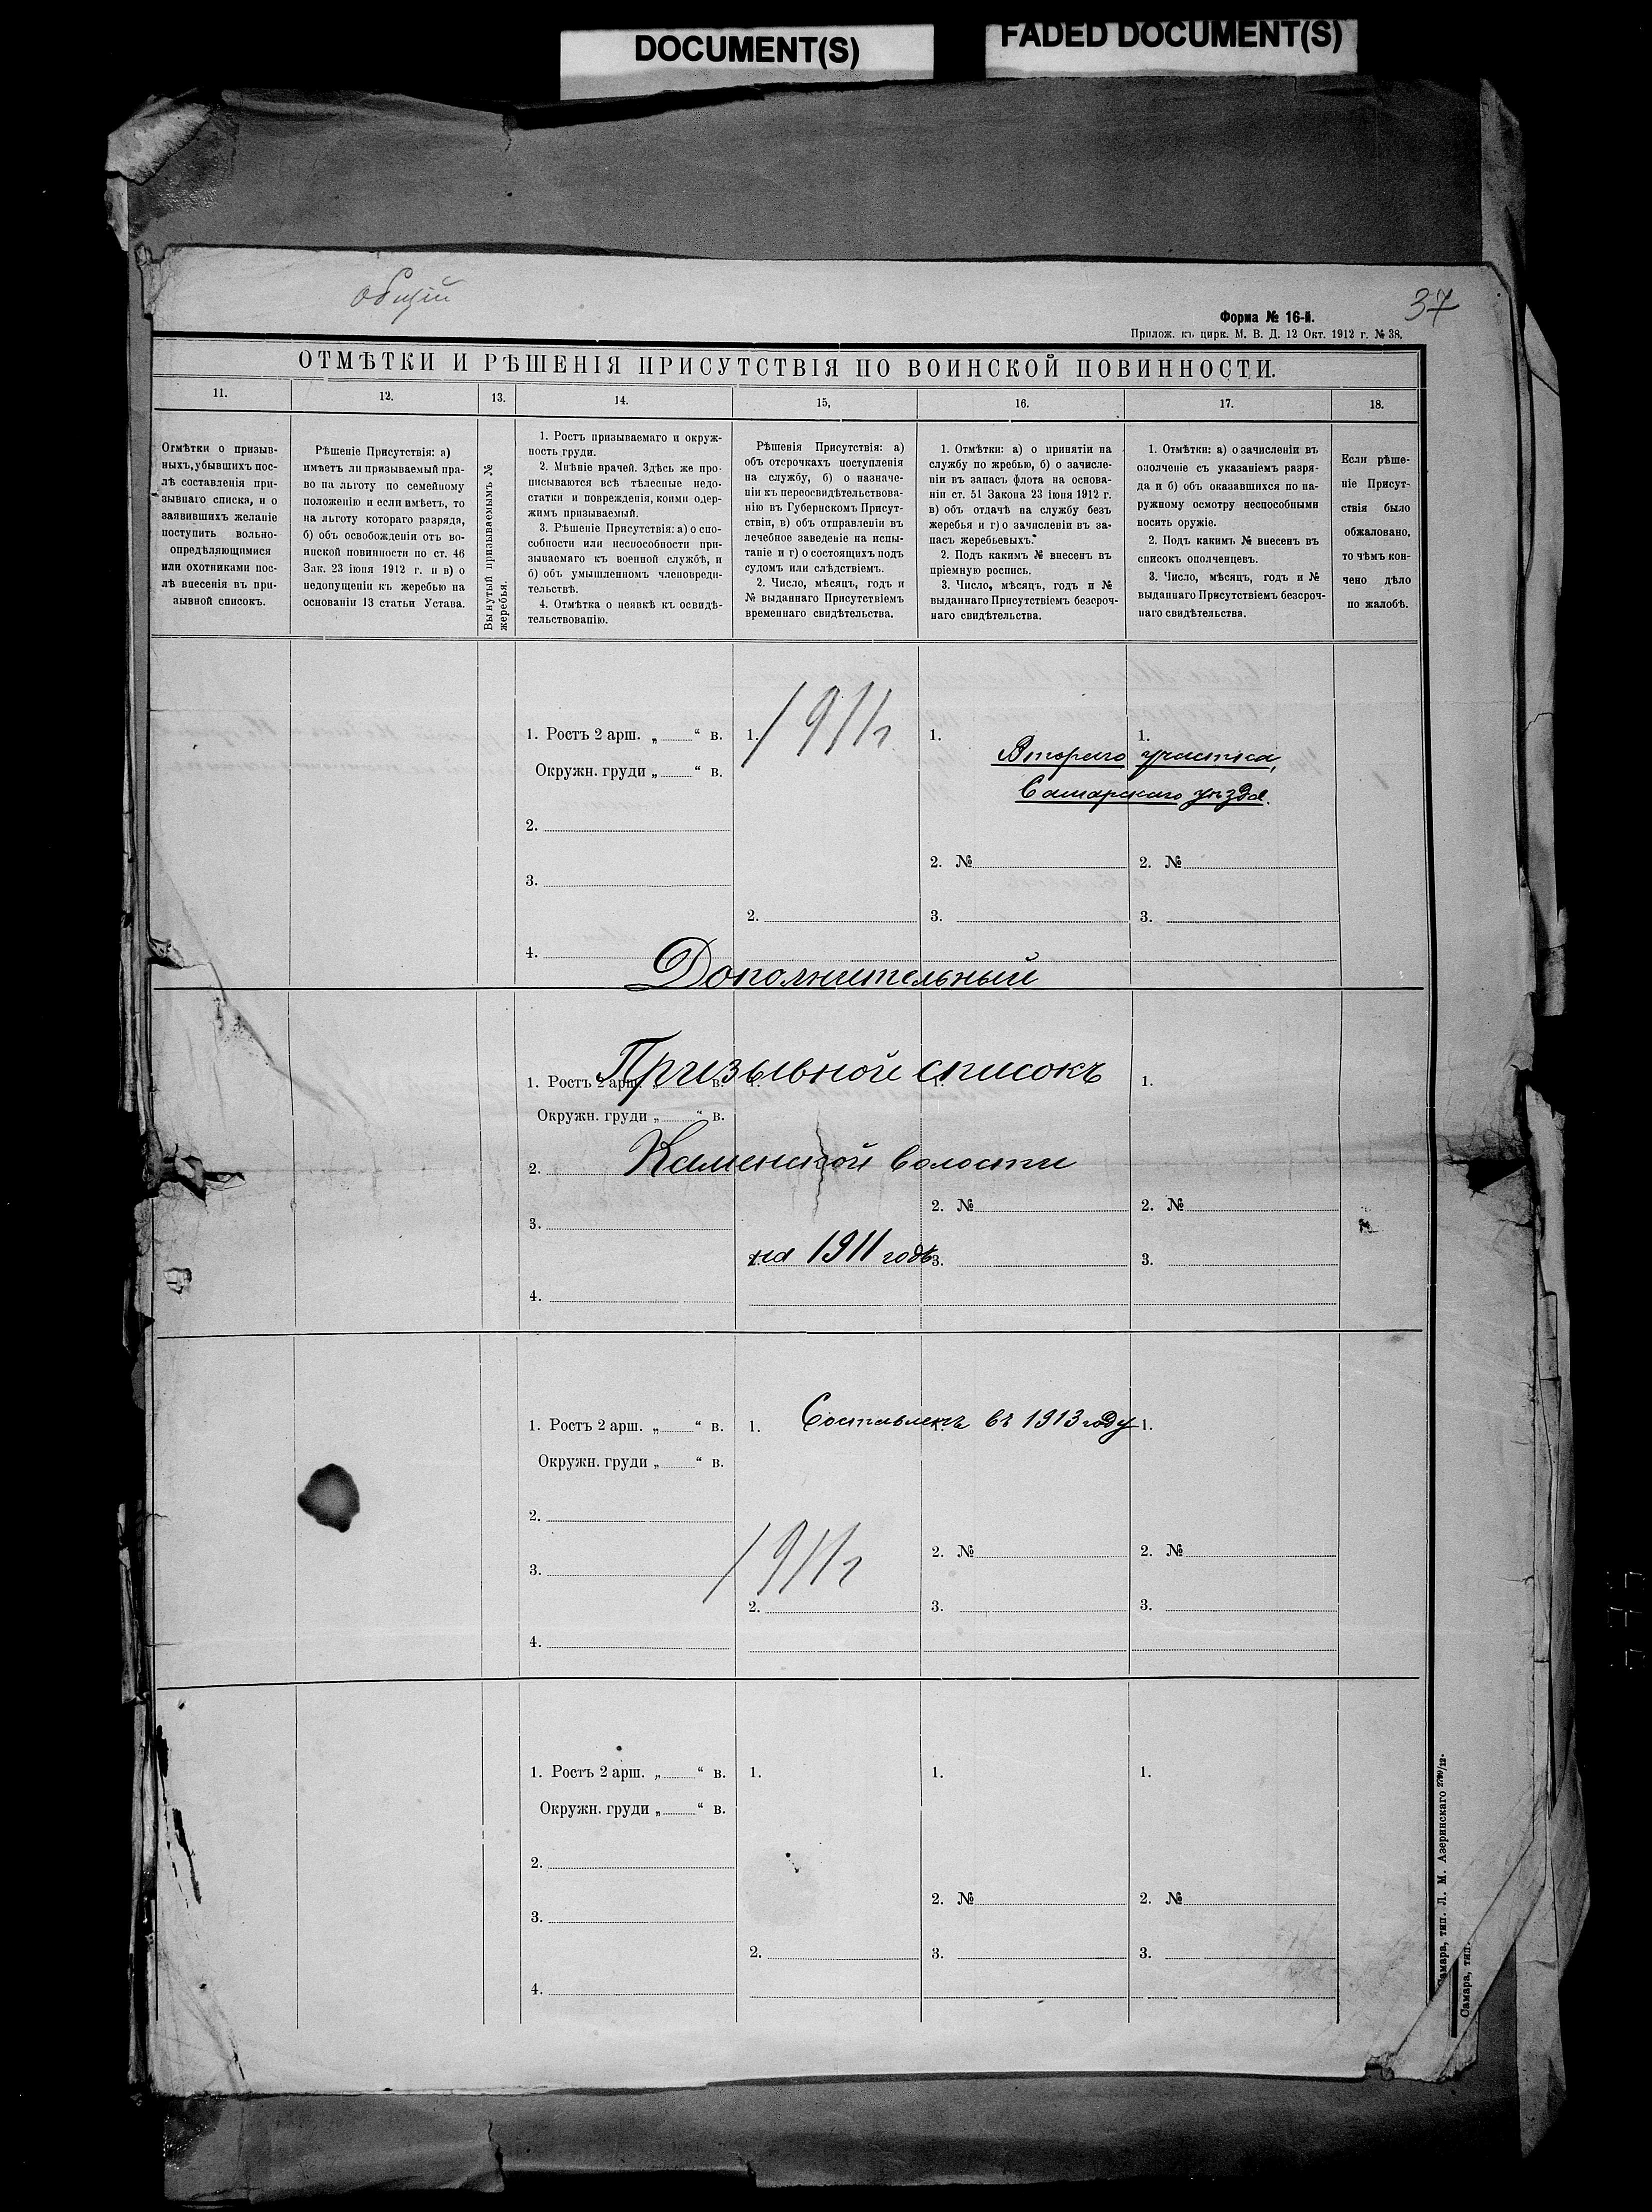 DOCUMENT(S)
FADED DOCUMENT(S)
общій
37
Форма № 16-й.
Прилож. къ цирк. М. В. Д. 12 Окт. 1912 г. № 38.
ОТМѢТКИ И РѢШЕНІЯ ПРИСУТСТВІЯ ПО ВОИНСКОЙ ПОВИННОСТИ.
11.
12.
13.
14.
15,
16.
17.
18.
Отмѣтки о призыв-
ныхъ, убывшихъ пос-
лѣ составленія при-
зывнаго списка, и о
заявившихъ желаніе
поступить вольно-
опредѣляющимися
или охотниками пос-
лѣ внесенія въ при-
зывной списокъ.
Рѣшеніе Присутствія: а)
имѣетъ ли призываемый пра-
во на льготу по семейному
положенію и если имѣетъ, то
на льготу котораго разряда,
б) объ освобожденіи отъ во-
инской повинности по ст. 46
Зак. 23 іюня 1912 г. и в) о
недопущеніи къ жеребью на
основаніи 13 статьи Устава.
Вынутый призываемымъ №
жеребья.
1. Ростъ призываемаго и окруж-
ность груди.
2. Мнѣніе врачей. Здѣсь же про-
писываются всѣ тѣлесные недо-
статки и поврежденія, коими одер-
жимъ призываемый.
3. Рѣшеніе Присутствія: а) о спо-
собности или неспособности при-
зываемаго къ военной службѣ, и
б) объ умышленномъ членовреди-
тельствѣ.
4. Отмѣтка о неявкѣ къ освидѣ-
тельствованію.
Рѣшенія Присутствія: а)
объ отсрочкахъ поступленія
на службу, б) о назначе-
ніи къ переосвидѣтельствова-
нію въ Губернскомъ Присут-
ствіи, в) объ отправленіи въ
лечебное заведеніе на испы-
таніе и г) о состоящихъ подъ
судомъ или слѣдствіемъ.
2. Число, мѣсяцъ, годъ и
№ выданнаго Присутствіемъ
временнаго свидѣтельства.
1. Отмѣтки: а) о принятіи на
службу по жребью, б) о зачисле-
ніи въ запасъ флота на основа-
ніи ст. 51 Закона 23 іюня 1912 г.
в) объ отдачѣ на службу безъ
жеребья и г) о зачисленіи въ за-
пасъ жеребьевыхъ.
2. Подъ какимъ № внесенъ въ
пріемную роспись.
3. Число, мѣсяцъ, годъ и №
выданнаго Присутствіемъ безсроч-
наго свидѣтельства.
1. Отмѣтки: а) о зачисленіи въ
ополченіе съ указаніемъ разря-
да и б) объ оказавшихся по на-
ружному осмотру неспособными
носить оружіе.
2. Подъ какимъ № внесенъ въ
списокъ ополченцевъ.
3. Число, мѣсяцъ, годъ и №
выданнаго Присутствіемъ безсроч-
наго свидѣтельства.
Если рѣше-
ніе Присут-
ствія было
обжаловано,
то чѣмъ кон-
чено дѣло
по жалобѣ.
1. Ростъ 2 арш. „ “ в. 1. 1911 г 1. 1.
Второго участка,
Окружн. груди „ “ в.
Самарскаго уѣзда.
2.
2. № 2. №
3.
2. 3. 3.
4.
Дополнительный
Призывной списокъ
1. Ростъ 2 арш. „ “ в. 1. 1. 1.
Окружн. груди „ “ в.
2. Каменской волости
2. № 2. №
3.
на 1911 годъ
2. 3. 3.
4.
1. Ростъ 2 арш. „ “ в. 1. Составленъ въ 1913 году 1. 1.
Окружн. груди „ “ в.
2.
2. № 2. №
3.
1911 г
2. 3. 3.
4.
1. Ростъ 2 арш. „ “ в. 1. 1. 1.
Окружн. груди „ “ в.
2.
2. № 2. №
3.
2. 3. 3.
4.
Самара, тип. Л. М. Азеринскаго
Самара, тип.